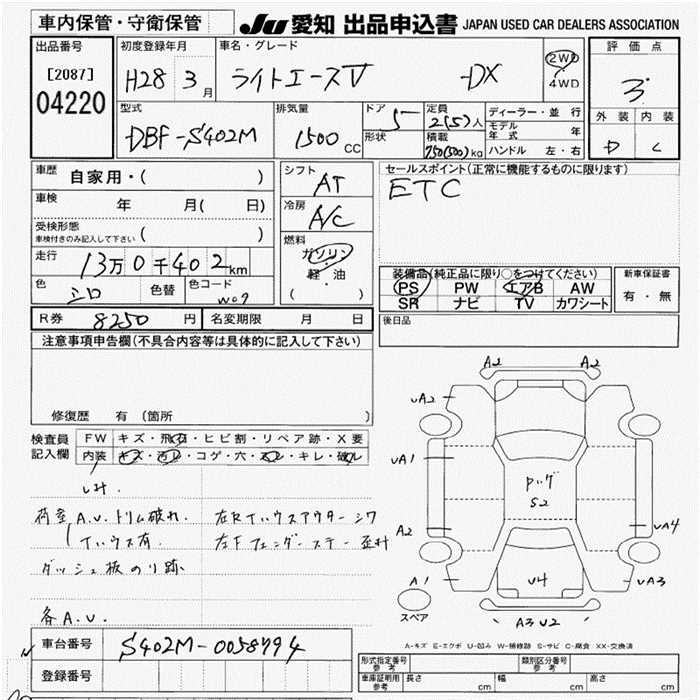 車内保管・守衛保管
JU 愛知 出品申込書 JAPAN USED CAR DEALERS ASSOCIATION
出品番号
[2087]
04220
初度登録年月
H28 3月
車名・グレード
ライトエースV -DX
2WD
4WD
評価点
3
外装 内装
D C
型式
DBF-S402M
排気量
1500 CC
ドア
5
形状
定員
2(5)人
積載
750(500)kg
ディーラー・並行
モデル年式 年
ハンドル 左・右
車歴
自家用・( )
車検
年 月( 日)
受検形態
車検付きのみ記入して下さい ( )
走行
13万0千402km
色
シロ
色替
色コード
W09
シフト
AT
冷房
A/C
燃料
ガソリン
・
軽油
( )
セールスポイント(正常に機能するものに限ります)
ETC
装備品(純正品に限り○をつけてください)
PS PW エアB AW
SR ナビ TV カワシート
新車保証書
有・無
R券 8250 円
名変期限 月 日
後日品
注意事項申告欄(不具合内容等は具体的に記入して下さい)
修復歴 有 (箇所 )
検査員記入欄
FW キズ・飛石・ヒビ割・リペア跡・X要
内装 キズ・汚レ・コゲ・穴・スレ・キレ・破レ
しみ.
荷室 A.U. トリム破れ. 左Rインパウスアウター シワ
左Fフェンダーステー 歪み
ダッシュ板のり跡
各A.U.
A2 A2
UA2
UA1
A2
A1
S2
U4
UA4
UA3
A3 U2
スペア
A-キズ E-エクボ U-凹み W-補修跡 S-サビ C-腐食 XX-交換済
車台番号 S402M-0058794
登録番号
型式指定番号 参考
類別区分番号 参考
車庫証明用 参考
長さ cm
幅 cm
高さ cm